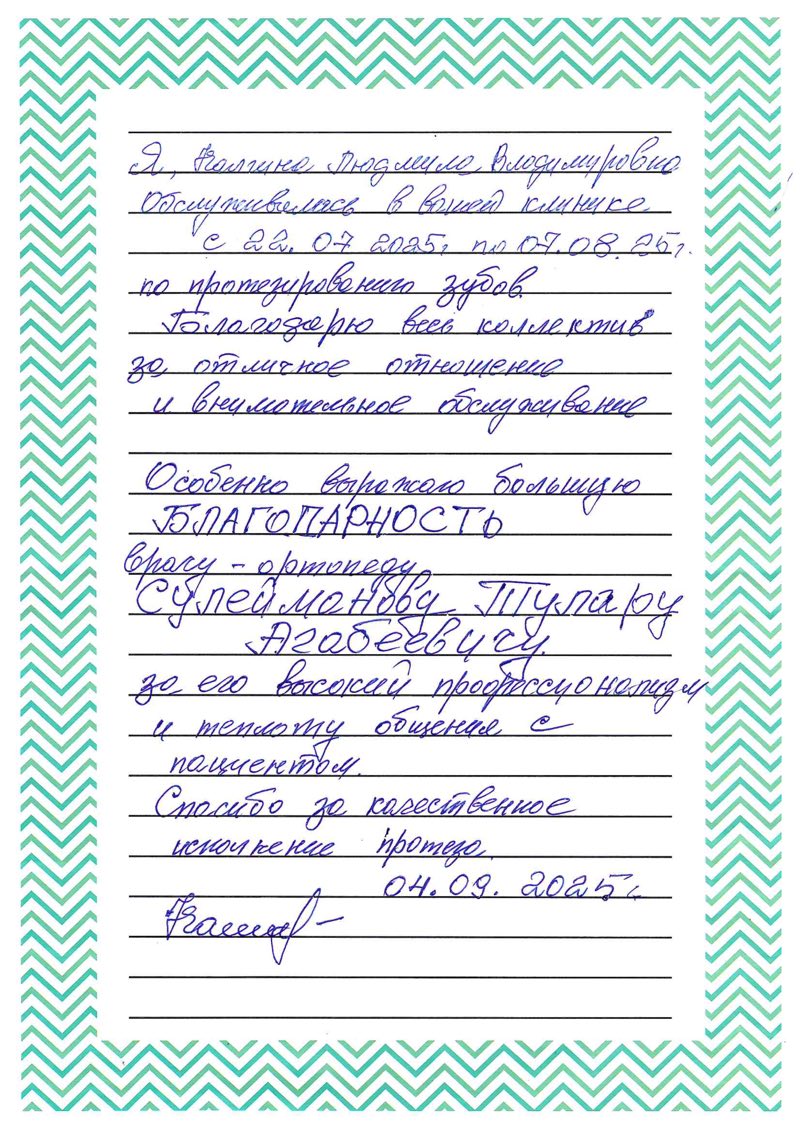 Я, Калгина Людмила Владимировна
Обслуживалась в вашей клинике
с 22.07 2025г по 07.08.25г.
по протезированию зубов.
Благодарю весь коллектив
за отличное отношение
и внимательное обслуживание
Особенно выражаю большую
БЛАГОДАРНОСТЬ
врачу - ортопеду
Сулейманову Тулару
Агабеевичу
за его высокий профессионализм
и теплоту общения с
пациентом.
Спасибо за качественное
исполнение протеза.
04.09. 2025г.